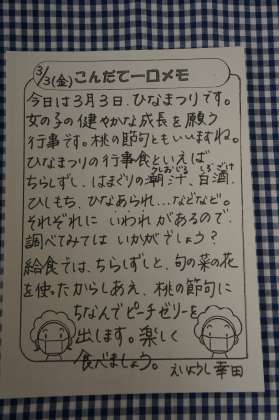 3/3(金)こんだて一口メモ
今日は3月3日、ひなまつりです。
女の子の健やかな成長を願う
行事です。桃の節句ともいいますね。
ひなまつりの行事食といえば
ちらしずし、はまぐりの潮汁、白酒、
ひしもち、ひなあられ…などなど。
それぞれに いわれ があるので、
調べてみては いかがでしょう?
給食では、ちらしずしと、旬の菜の花
を使ったからしあえ、桃の節句に
ちなんでピーチゼリーを
出します。楽しく
食べましょう。
えいようし 幸田